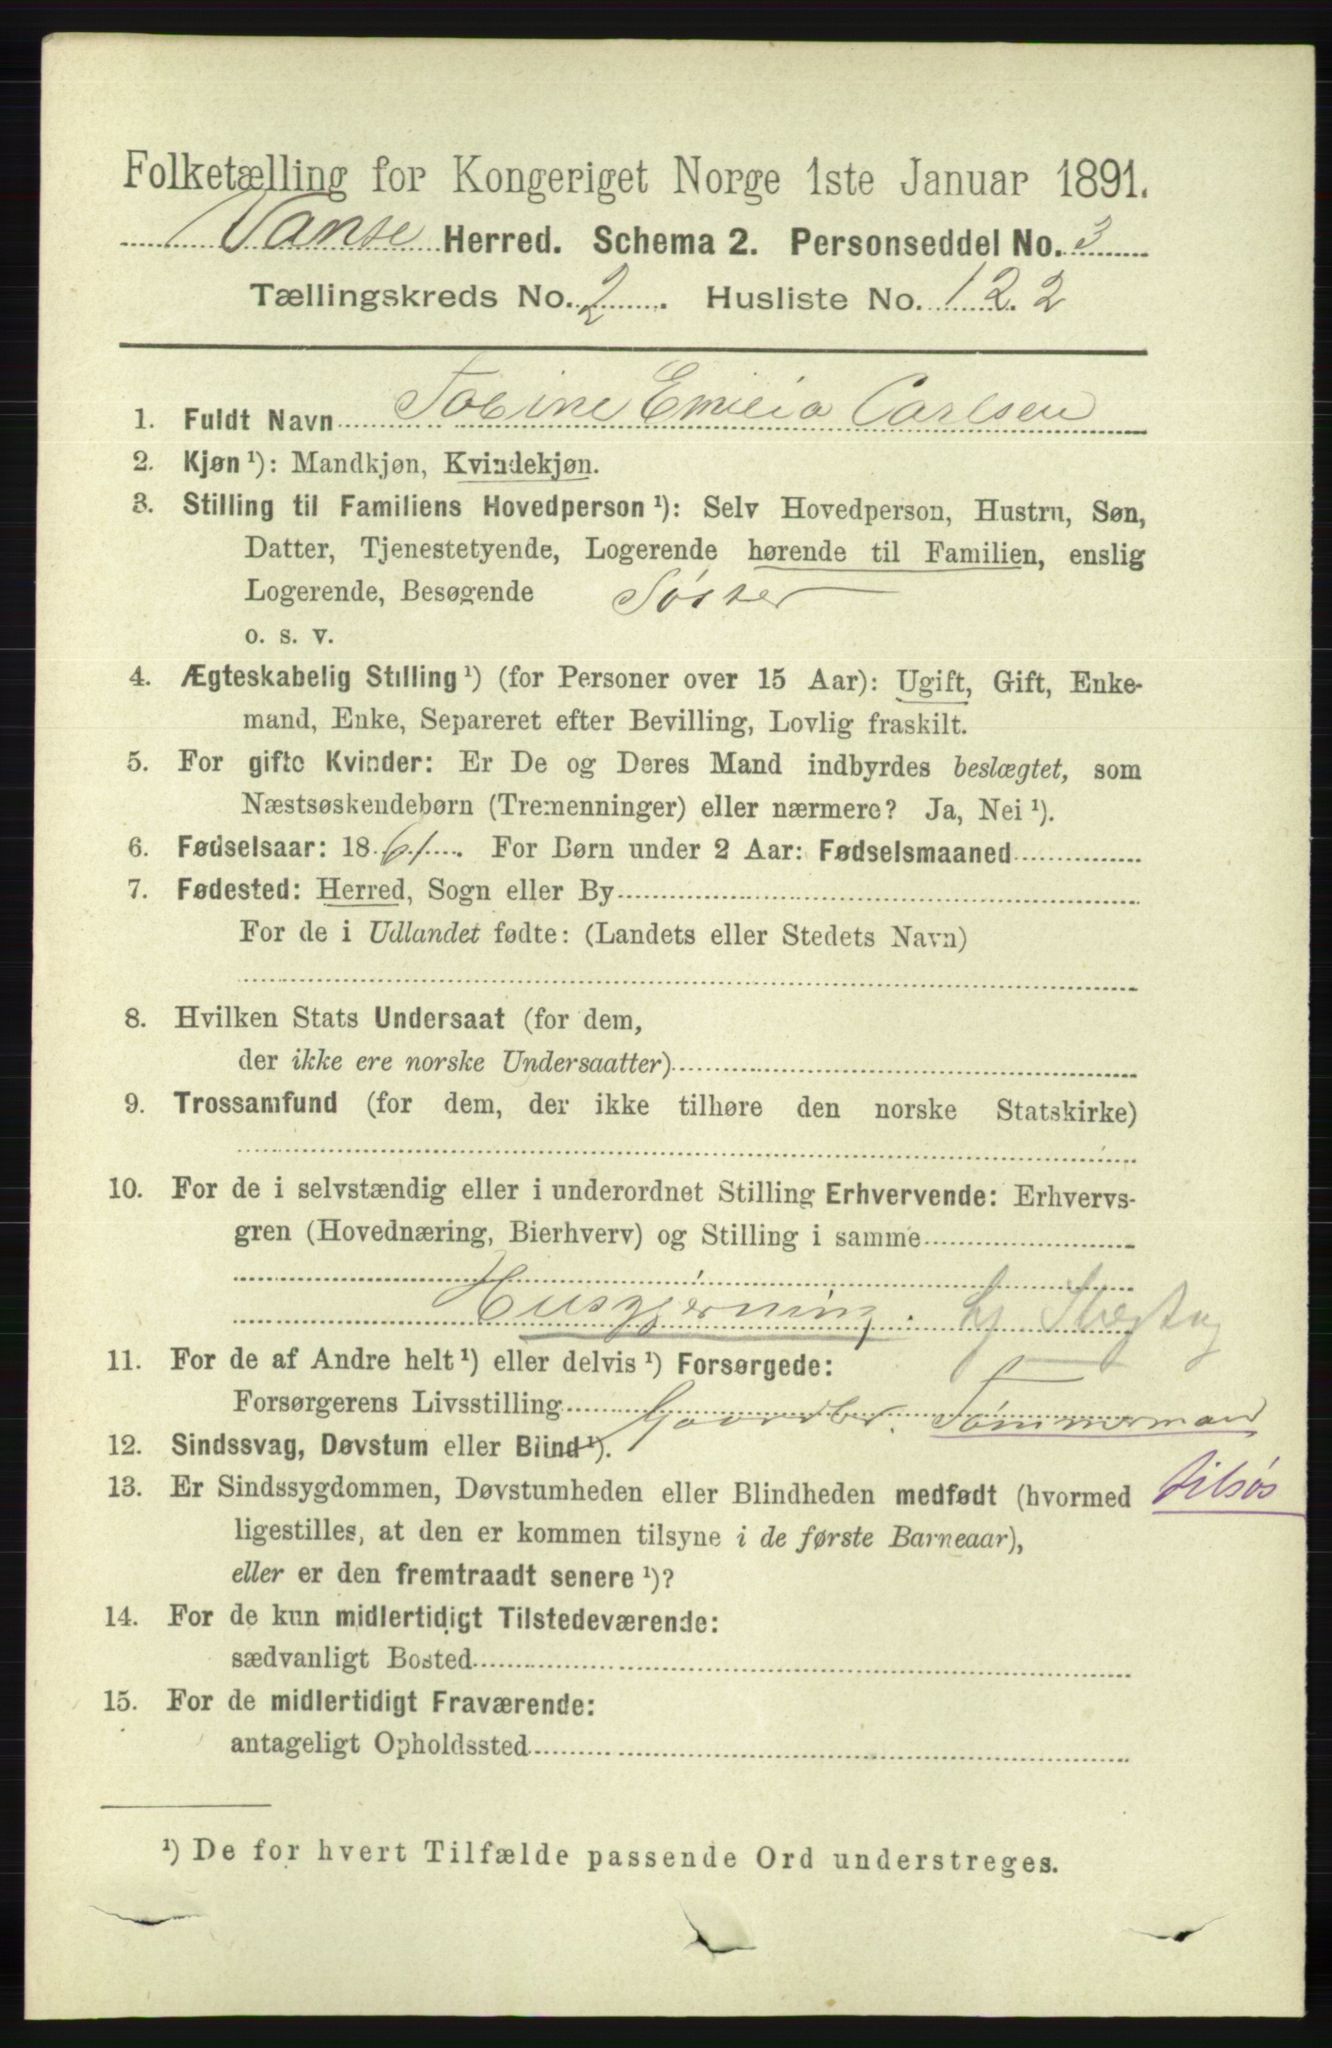 Folketælling for Kongeriget Norge 1ste Januar 1891.
Vanse Herred. Schema 2. Personseddel No. 3
Tællingskreds No. 2. Husliste No. 122
1. Fuldt Navn Tobine Emilia Carlsen
2. Kjøn ¹): Mandkjøn, Kvindekjøn.
3. Stilling til Familiens Hovedperson ¹): Selv Hovedperson, Hustru, Søn,
Datter, Tjenestetyende, Logerende hørende til Familien, enslig
Logerende, Besøgende Søster
o. s. v.
4. Ægteskabelig Stilling ¹) (for Personer over 15 Aar): Ugift, Gift, Enke-
mand, Enke, Separeret efter Bevilling, Lovlig fraskilt.
5. For gifte Kvinder: Er De og Deres Mand indbyrdes beslægtet, som
Næstsøskendebørn (Tremenninger) eller nærmere? Ja, Nei ¹).
6. Fødselsaar: 1861. For Børn under 2 Aar: Fødselsmaaned
7. Fødested: Herred, Sogn eller By
For de i Udlandet fødte: (Landets eller Stedets Navn)
8. Hvilken Stats Undersaat (for dem,
der ikke ere norske Undersaatter)
9. Trossamfund (for dem, der ikke tilhøre den norske Statskirke)
10. For de i selvstændig eller i underordnet Stilling Erhvervende: Erhvervs-
gren (Hovednæring, Bierhverv) og Stilling i samme
Husgjerning.
11. For de af Andre helt ¹) eller delvis ¹) Forsørgede:
Forsørgerens Livsstilling Gaardbr. Tømmermand
12. Sindssvag, Døvstum eller Blind ¹).
13. Er Sindssygdommen, Døvstumheden eller Blindheden medfødt (hvormed tilsøs
ligestilles, at den er kommen tilsyne i de første Barneaar),
eller er den fremtraadt senere ¹)?
14. For de kun midlertidigt Tilstedeværende:
sædvanligt Bosted
15. For de midlertidigt Fraværende:
antageligt Opholdssted
¹) De for hvert Tilfælde passende Ord understreges.